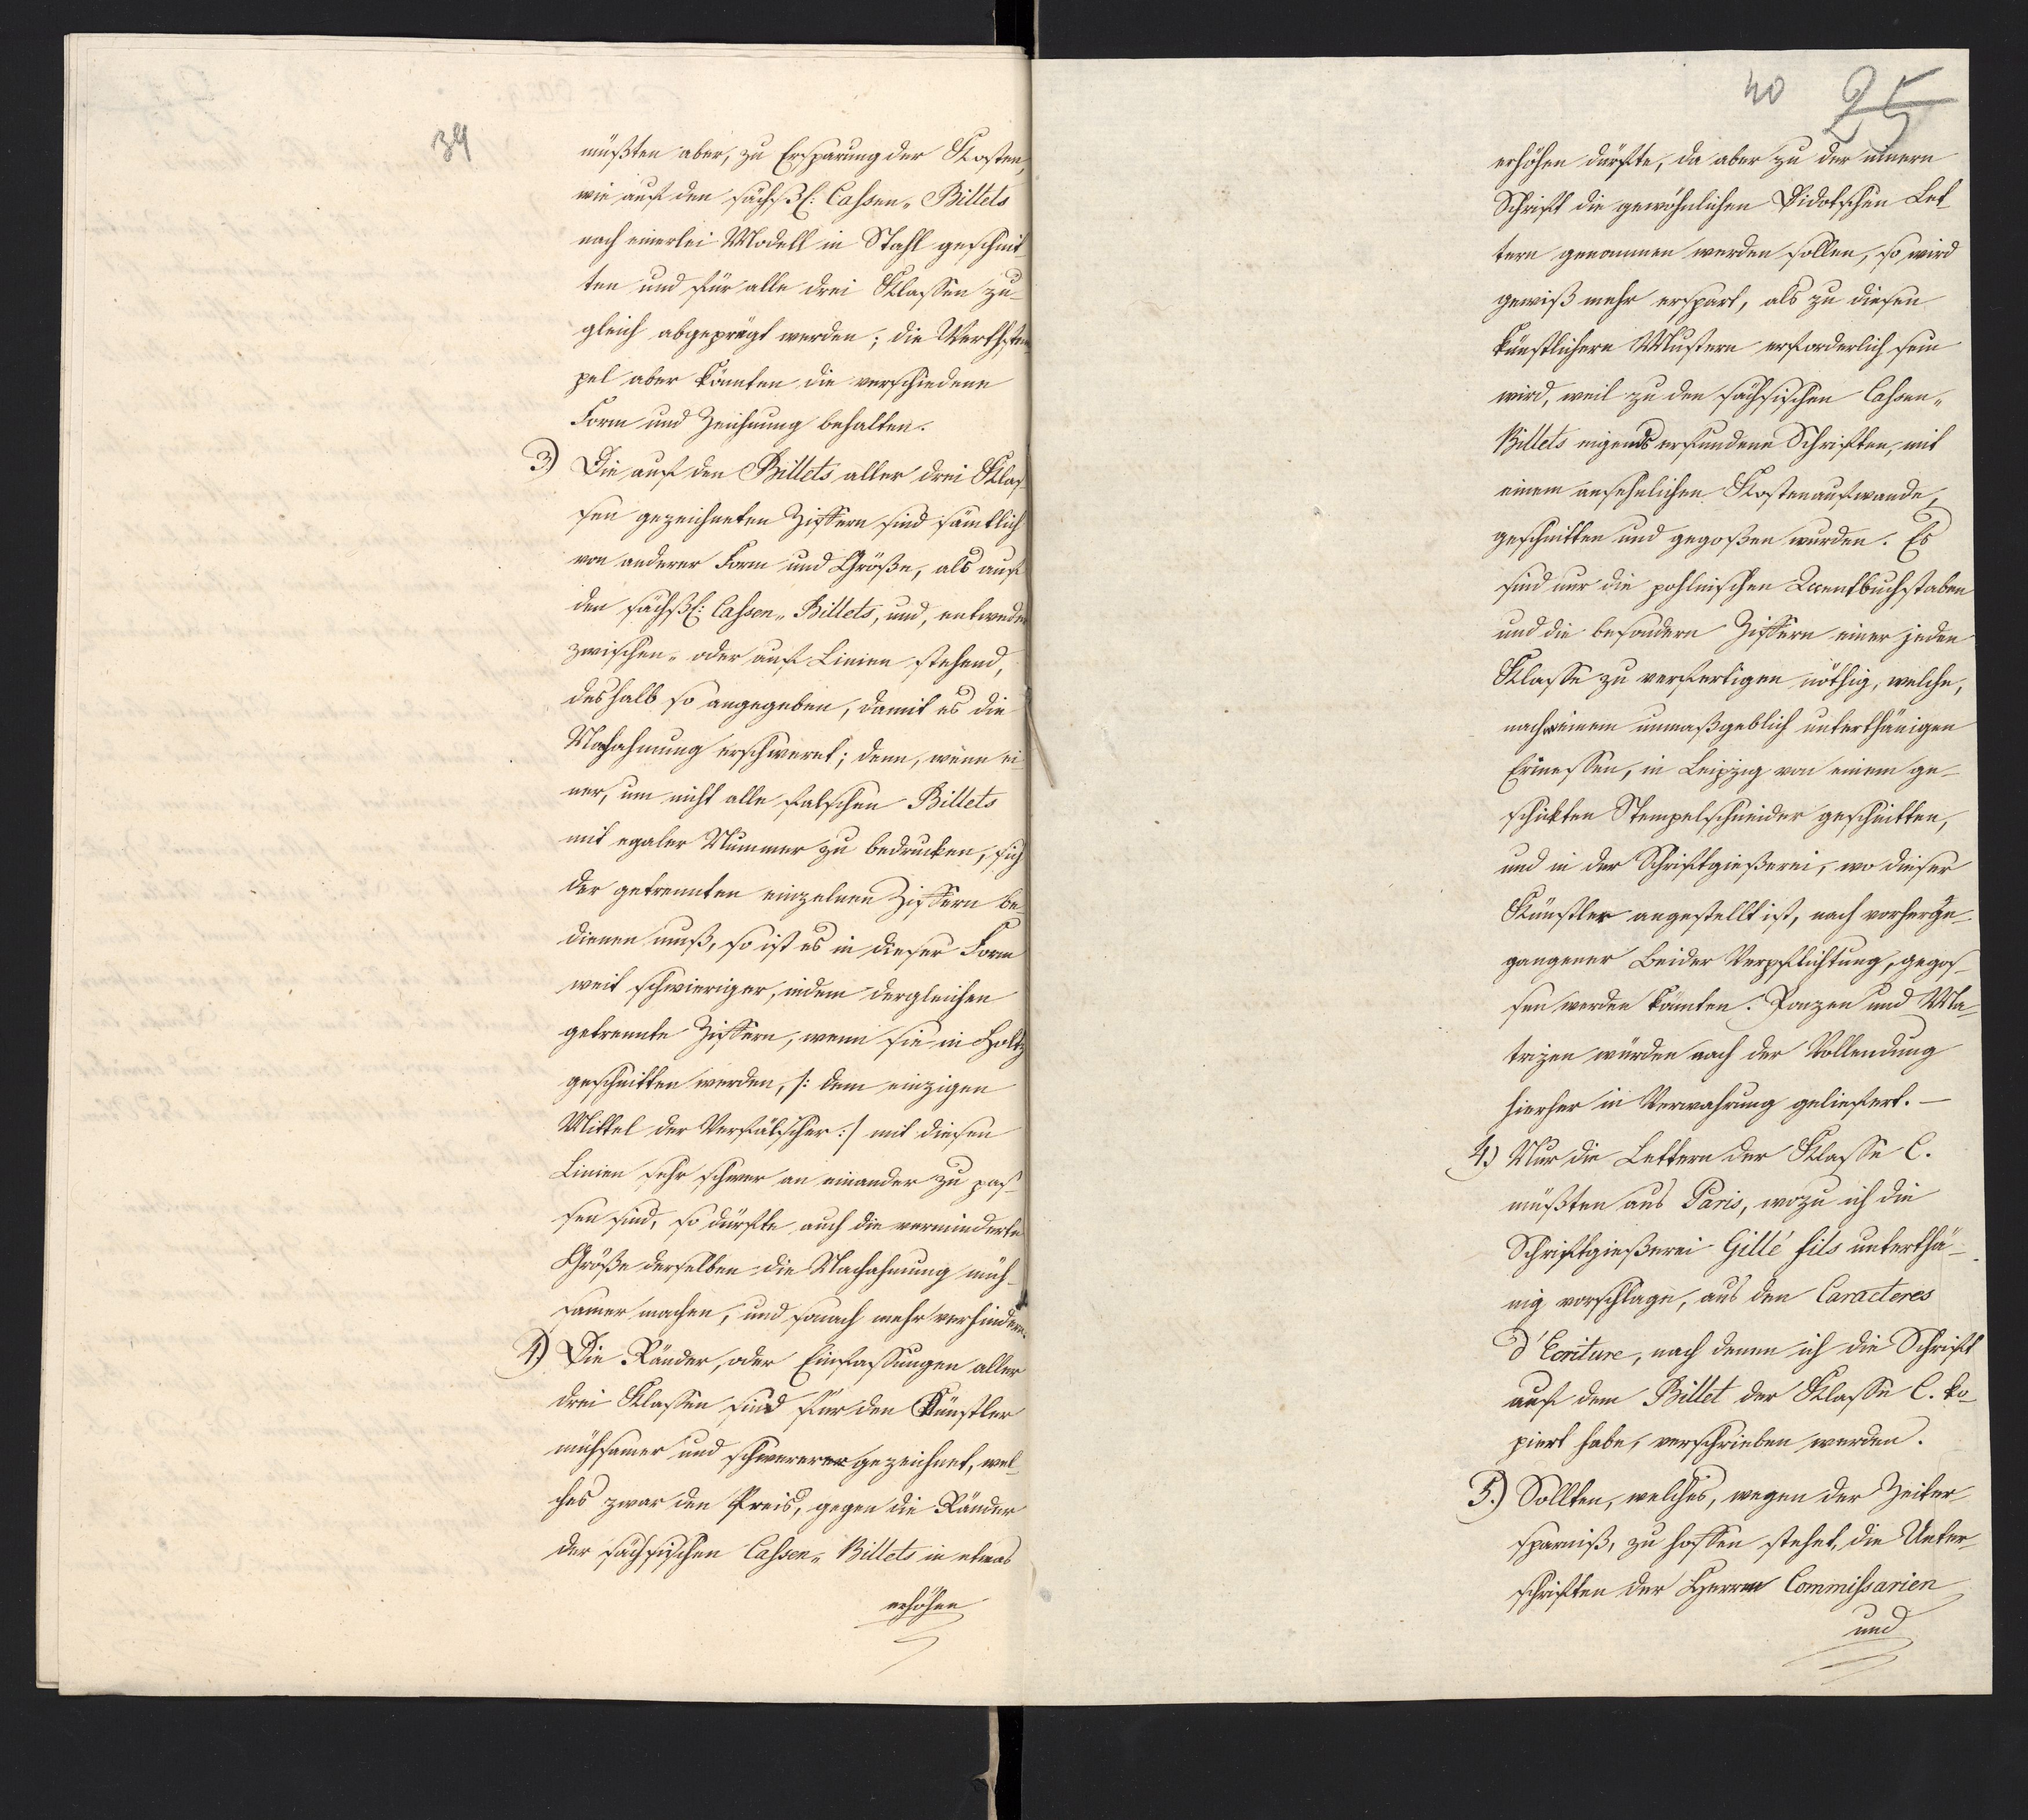 39
müßten aber, zu Ersparung der Kosten,
wie auf den sächß: Cassen-Billets
nach einerlei Modell in Stahl geschnit-
ten und für alle drei Klassen zu-
gleich abgeprägt werden; die Werthstem-
pel aber könnten die verschiedene
Form und Zeichnung behalten.
3) Die auf den Billets aller drei Klas-
sen gezeichneten Ziffern sind sämtlich
von anderer Form und Größe, als auf
den sächß: Cassen-Billets, und, entweder
zwischen- oder auf Linien stehend,
deshalb so angegeben, damit es die
Nachahmung erschweret; denn, wenn ei-
ner, um nicht alle falschen Billets
mit egaler Nummer zu bedrucken, sich
der getrennten einzelnen Ziffern be-
dienen muß, so ist es in dieser Form
weit schwieriger, indem dergleichen
getrennte Ziffern, wenn sie in Holtz
geschnitten werden, /: dem einzigen
Mittel der Verfälscher :/ mit diesen
Linien sehr schwer an einander zu pas-
sen sind, so dürfte auch die verminderte
Größe derselben die Nachahmung müh-
samer machen, und sonach mehr verhindern.
4) Die Ränder, oder Einfassungen aller
drei Klassen sind für den Künstler
mühsamer und schwerer gezeichnet, wel-
ches zwar den Preis, gegen die Ränder
der sächsischen Cassen-Billets in etwas
erhöhen
40 25
erhöhen dürfte, da aber zu der innern
Schrift die gewöhnlichen Didotschen Let-
tern genommen werden sollen, so wird
gewiß mehr erspart, als zu diesen
künstlichern Mustern erforderlich sein
wird, weil zu den sächsischen Cassen-
Billets eigends erfundene Schriften, mit
einem ansehnlichen Kostenaufwande,
geschnitten und gegoßen wurden. Es
sind nur die pohlnischen Accentbuchstaben
und die besondern Ziffern einer jeden
Klasse zu verfertigen nöthig, welche,
nach meinem unmaßgeblich unterthänigen
Ermessen, in Leipzig von einem ge-
schickten Stempelschneider geschnitten,
und in der Schriftgießerei, wo dieser
Künstler angestellt ist, nach vorherge-
gangener Beider Verpflichtung, gegos-
sen werden könnten. Ponzen und Ma-
trizen würden nach der Vollendung
hierher in Verwahrung geliefert. —
4.) Nur die Lettern der Klasse C.
müßten aus Paris, wozu ich die
Schriftgießerei Gillé fils unterthä-
nig vorschlage, aus den Caracteres
d'Ecriture, nach denen ich die Schrift
auf dem Billet der Klasse C. ko-
piert habe, verschrieben werden.
5.) Sollten, welches, wegen der Zeiter-
sparniß, zu hoffen stehet, die Unter-
schriften der Herren Commissarien
und